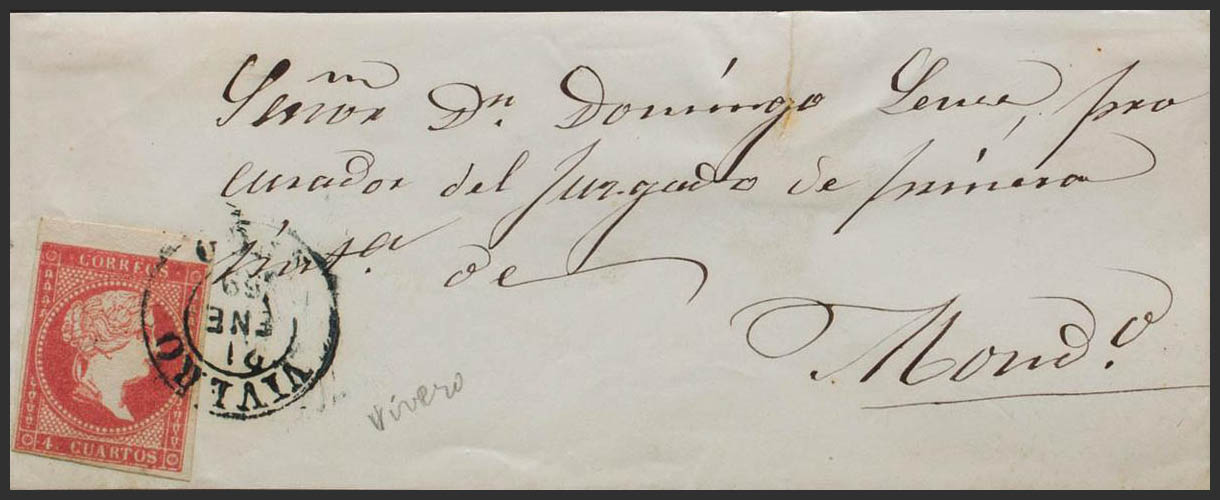 Señor Dn. Domingo Lence, pro
curador del Juzgado de primera
insta. de
Mondo.
CORREOS
4 CUARTOS
VIVERO
21
ENE
59
Vivero